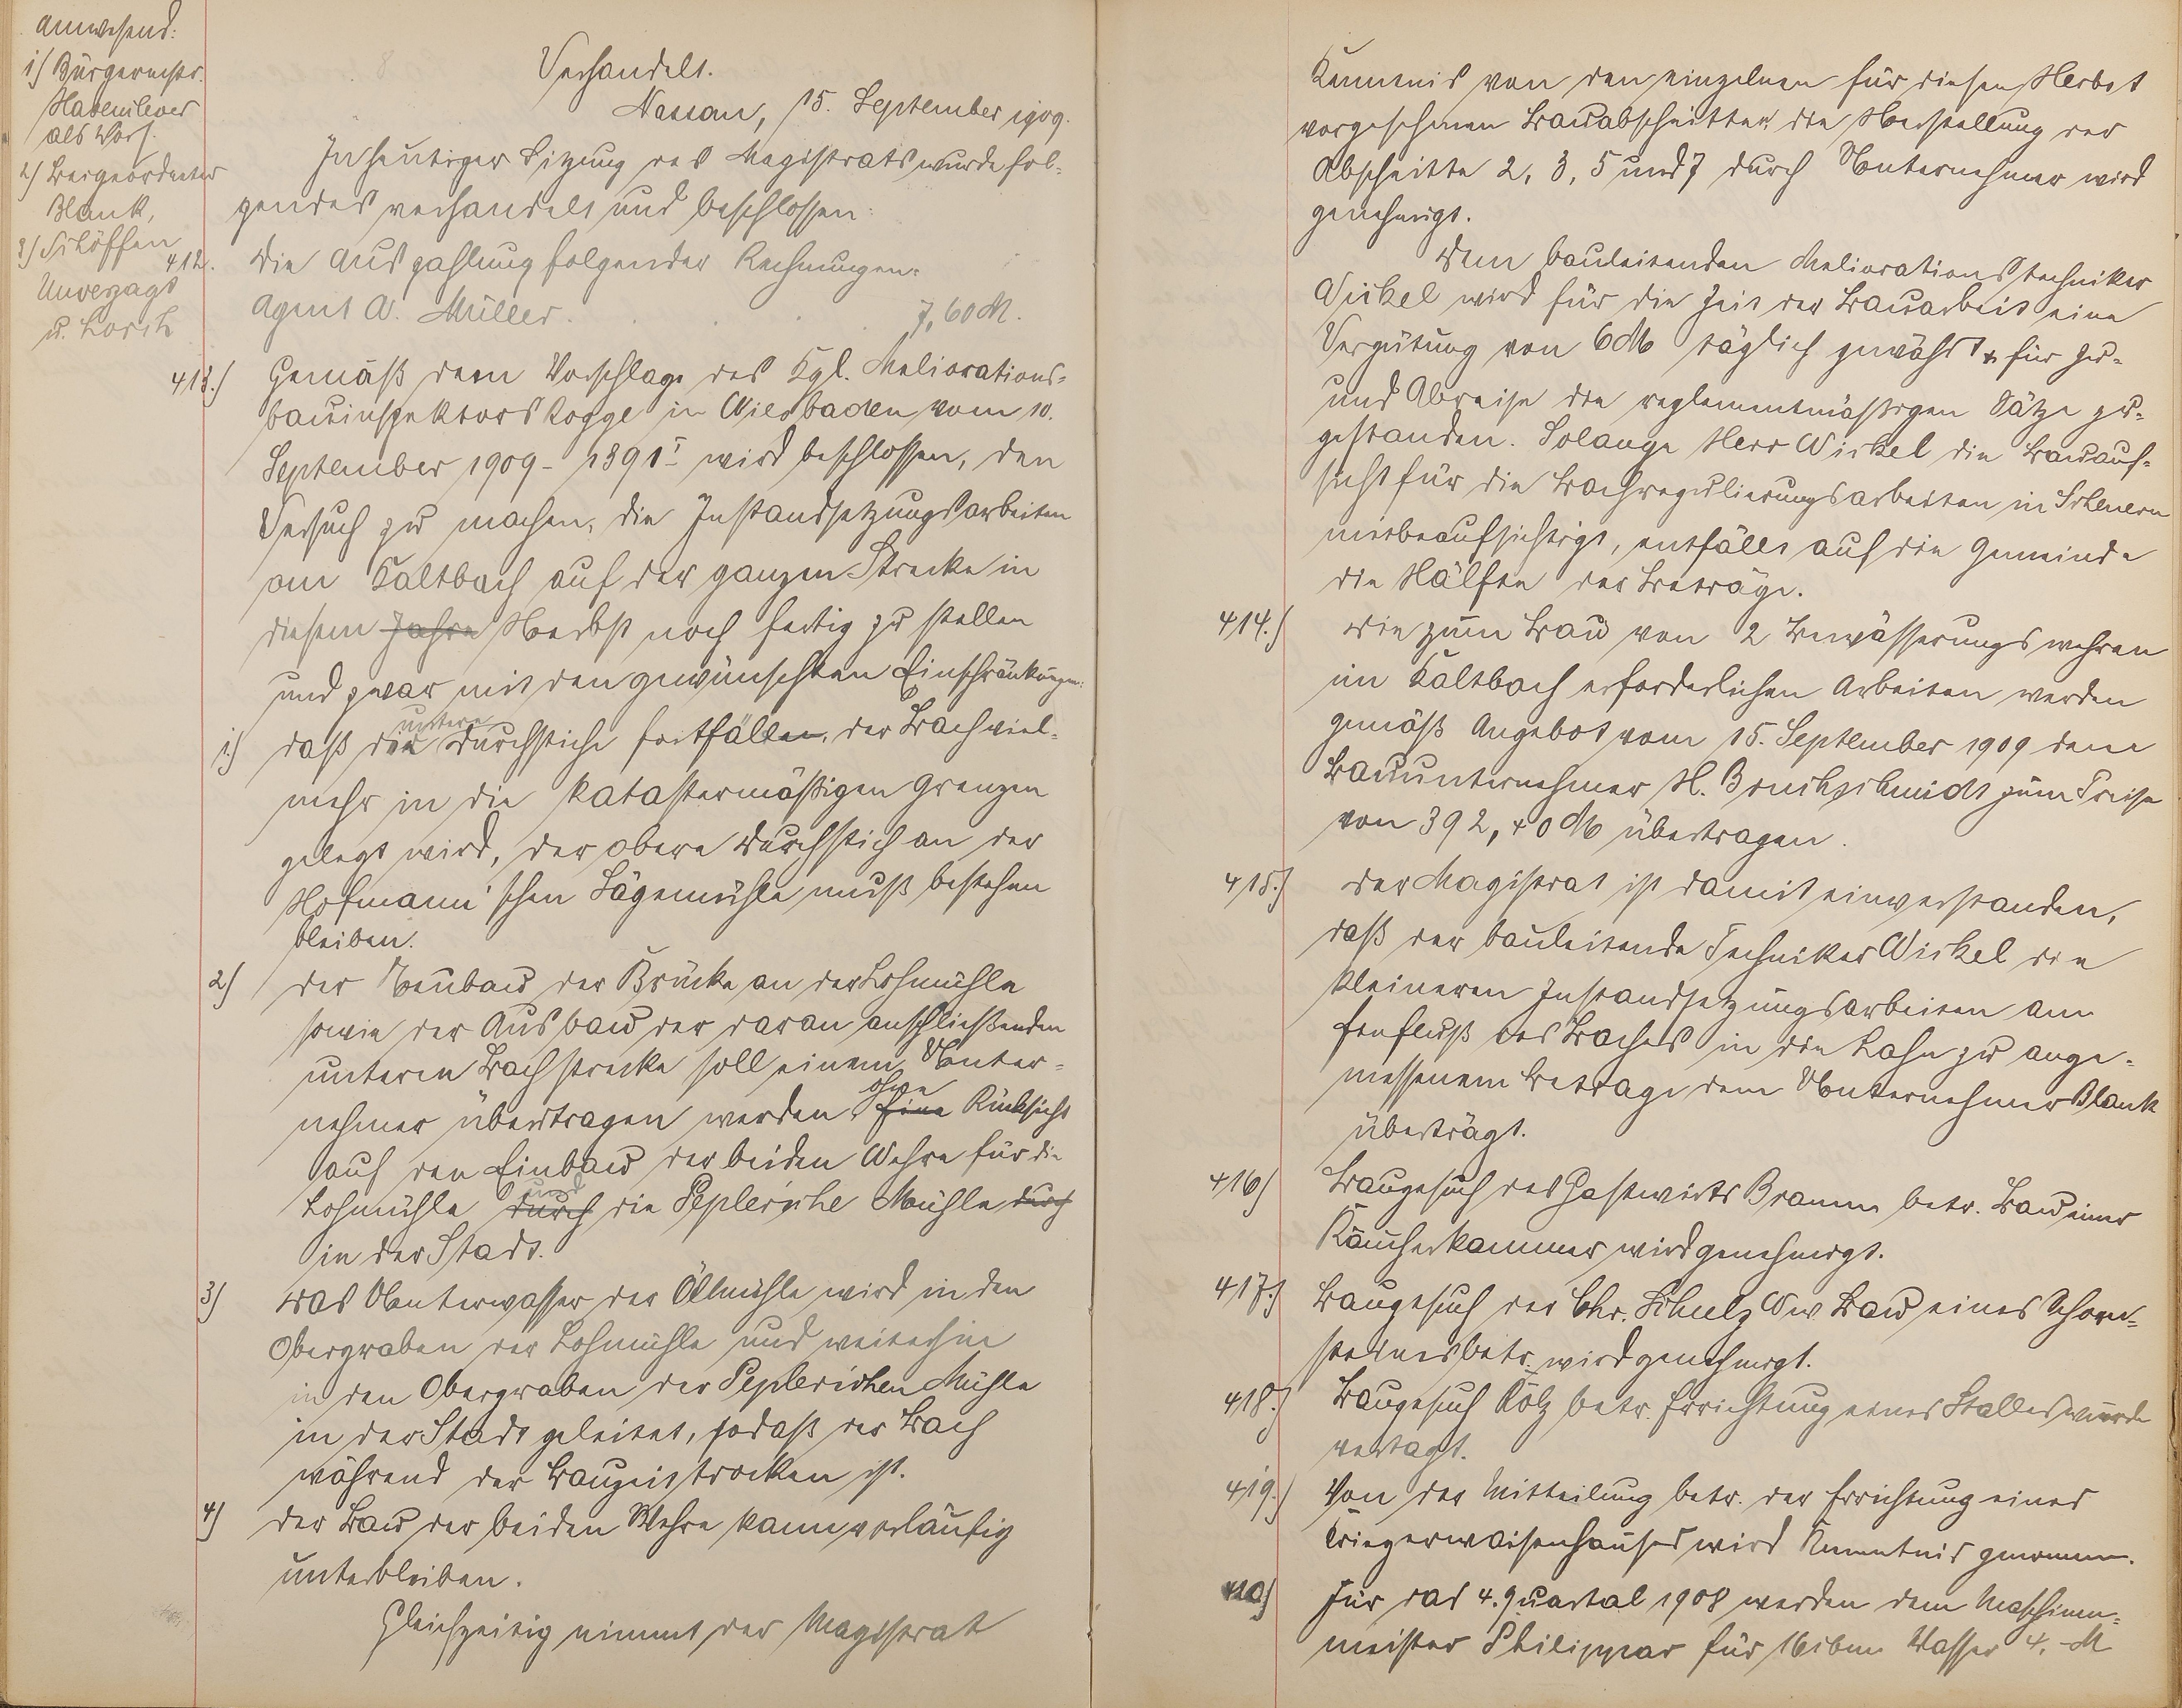 anwesend:
1) Bürgermstr.
Hasenclever
als Vors.
2) Beigeordneter
Blank,
3) Schöffen
Unverzagt
u. Lorch
Verhandelt.
Nassau, 15. September 1909.
In heutiger Sitzung des Magistrats wurde fol-
gendes verhandelt und beschlossen:
412. Die Auszahlung folgender Rechnungen:
Agent A. Müller . . . . 7,60 M.
413.) Gemäß dem Vorschlage des Kgl. Meliorations-
bauinspektors Rogge in Wiesbaden vom 10.
September 1909 - 1391 I wird beschlossen, den
Versuch zu machen, die Instandsetzungsarbeiten
am Kaltbach auf der ganzen Strecke in
diesem Jahre Herbst noch fertig zu stellen
und zwar mit den gewünschten Einschränkungen:
1) daß die untere Durchstiche fortfällen, der Bach viel-
mehr in die katastermäßigen Grenzen
gelegt wird, der obere Durchstich an der
Hofmann'schen Sägemühle muß bestehen
bleiben.
2) Der Neubau der Brücke an der Lohmühle
sowie der Ausbau der daran anschließenden
unteren Bachstrecke soll einem Unter-
nehmer übertragen werden, ohne Rücksicht
auf den Einbau der beiden Wehre für die
Lohmühle durch und die Pepler'sche Mühle durch
in der Stadt.
3) Das Unterwasser der Ölmühle wird in den
Obergraben der Lohmühle und weiterhin
in den Obergraben der Peplerschen Mühle
in der Stadt geleitet, sodaß der Bach
während der Bauzeit trocken ist.
4) Der Bau der beiden Wehre kann vorläufig
unterbleiben.
Gleichzeitig nimmt der Magistrat
Kenntnis von den einzelnen für diesen Herbst
vorgesehenen Bauabschnitten die Herstellung der
Abschnitte 2, 3, 5 und 7 durch Unternehmer wird
genehmigt.
Dem bauleitenden Meliorationstechniker
Wickel wird für die Zeit der Bauarbeit eine
Vergütung von 6 M täglich gewährt, für Zu-
und Abreise die reglementmäßigen Sätze zu-
gestanden. Solange Herr Wickel die Bauauf-
sicht für die Bachregulierungsarbeiten in Scheuern
mitbeaufsichtigt, entfällt auf die Gemeinde
die Hälfte der Beträge.
414.) Die zum Bau von 2 Bewässerungswehren
im Kaltbach erforderlichen Arbeiten werden
gemäß Angebot vom 15. September 1909 dem
Bauunternehmer H. Bruchschmidt zum Preise
von 392,40 M übertragen.
415.) Der Magistrat ist damit einverstanden,
daß der bauleitende Techniker Wickel die
kleineren Instandsetzungsarbeiten am
Einfluß des Baches in die Lahn zu ange-
messenem Betrage dem Unternehmer Blank
überträgt.
416) Baugesuch des Gastwirts Bramm betr. Bau einer
Räucherkammer wird genehmigt.
417.) Baugesuch der Chr. Schulz Ww Bau eines Schorn-
steines betr. wird genehmigt.
418.) Baugesuch Kölz betr. Errichtung eines Stalles wurde
vertagt.
419.) Von der Mitteilung betr. der Errichtung eines
Kriegerwaisenhauses wird Kenntnis genommen.
420) Für das 4. Quartal 1908 werden dem Maschinen-
meister Philippar für 16 cbm Wasser 4,- M